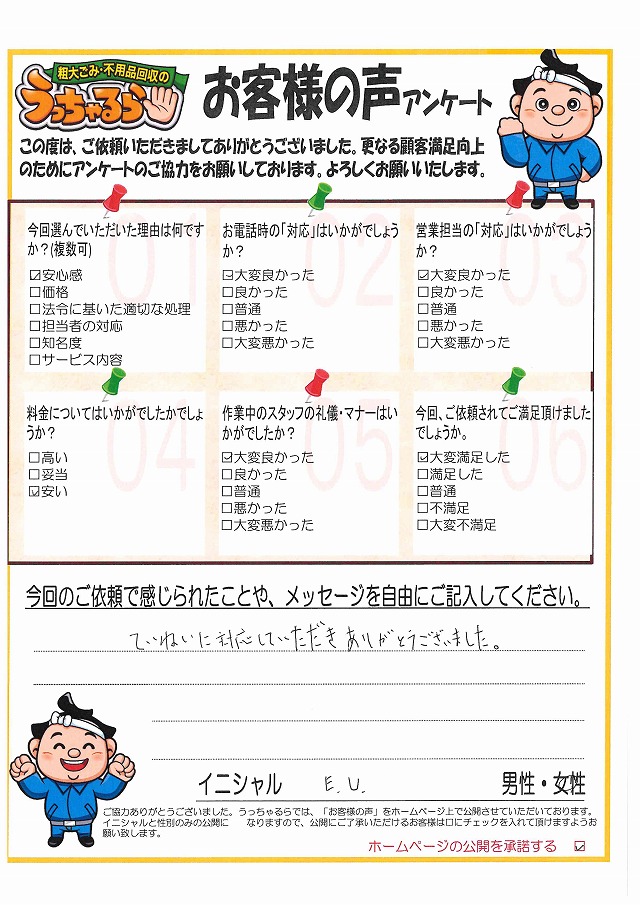 粗大ごみ・不用品回収の
うっちゃるら
お客様の声アンケート
この度は、ご依頼いただきましてありがとうございました。更なる顧客満足向上
のためにアンケートのご協力をお願いしております。よろしくお願いいたします。
01
今回選んでいただいた理由は何です
か?(複数可)
☑安心感
□価格
□法令に基いた適切な処理
□担当者の対応
□知名度
□サービス内容
02
お電話時の「対応」はいかがでしょう
か?
☑大変良かった
□良かった
□普通
□悪かった
□大変悪かった
03
営業担当の「対応」はいかがでしょう
か?
☑大変良かった
□良かった
□普通
□悪かった
□大変悪かった
04
料金についてはいかがでしたかでしょ
うか?
□高い
□妥当
☑安い
05
作業中のスタッフの礼儀・マナーはい
かがでしたか?
☑大変良かった
□良かった
□普通
□悪かった
□大変悪かった
06
今回、ご依頼されてご満足頂けました
でしょうか。
☑大変満足した
□満足した
□普通
□不満足
□大変不満足
今回のご依頼で感じられたことや、メッセージを自由にご記入してください。
ていねいに対応していただきありがとうございました。
イニシャル E.U. 男性・女性
ご協力ありがとうございました。うっちゃるらでは、「お客様の声」をホームページ上で公開させていただいております。
イニシャルと性別のみの公開に なりますので、公開にご了承いただけるお客様は口にチェックを入れて頂けますようお
願い致します。
ホームページの公開を承諾する ☑